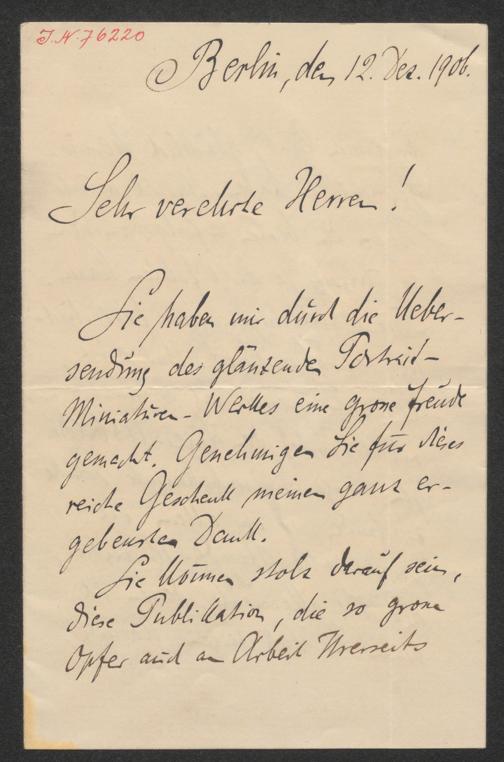 J.N. 76220
Berlin, den 12. Dez. 1906.
Sehr verehrte Herren!
Sie haben mir durch die Ueber-
sendung des glänzenden Portrait-
Miniaturen-Werkes eine grosse Freude
gemacht. Genehmigen Sie für dieses
reiche Geschenk meinen ganz er-
gebensten Dank.
Sie können stolz darauf sein,
diese Publikation, die so grosse
Opfer auch an Arbeit Ihrerseits